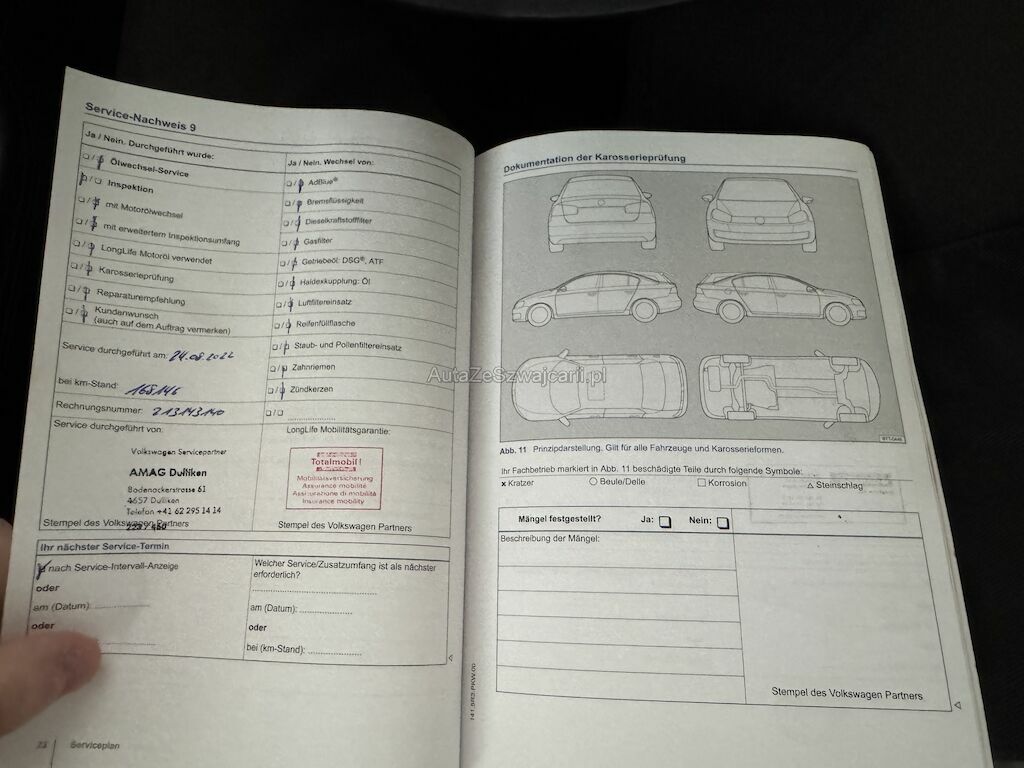 Service-Nachweis 9
Ja / Nein. Durchgeführt wurde:
Ölwechsel-Service
Inspektion
mit Motorölwechsel
mit erweitertem Inspektionsumfang
LongLife Motoröl verwendet
Karosserieprüfung
Reparaturempfehlung
Kundenwunsch
(auch auf dem Auftrag vermerken)
Service durchgeführt am: 24.08.2022
bei km-Stand: 168146
Rechnungsnummer: 213143140
Service durchgeführt von:
Volkswagen Servicepartner
AMAG Dulliken
Bodenackerstrasse 61
4657 Dulliken
Telefon +41 62 295 14 14
Stempel des Volkswagen Partners
Ja / Nein. Wechsel von:
AdBlue®
Bremsflüssigkeit
Dieselkraftstofffilter
Gasfilter
Getriebeöl: DSG®, ATF
Haldexkupplung: Öl
Luftfiltereinsatz
Reifenfüllflasche
Staub- und Pollenfiltereinsatz
Zahnriemen
Zündkerzen
LongLife Mobilitätsgarantie:
Totalmobil!
Mobilitätsversicherung
Assurance mobilité
Assicurazione di mobilità
Insurance mobility
Stempel des Volkswagen Partners
Ihr nächster Service-Termin
nach Service-Intervall-Anzeige
oder
am (Datum):
oder
Welcher Service/Zusatzumfang ist als nächster
erforderlich?
am (Datum):
oder
bei (km-Stand):
23 Serviceplan
141.5R2.PKW.00
Dokumentation der Karosserieprüfung
AutaZeSzwajcarii.pl
Abb. 11 Prinzipdarstellung. Gilt für alle Fahrzeuge und Karosserieformen.
Ihr Fachbetrieb markiert in Abb. 11 beschädigte Teile durch folgende Symbole:
x Kratzer
Beule/Delle
Korrosion
Steinschlag
Mängel festgestellt? Ja: Nein:
Beschreibung der Mängel:
Stempel des Volkswagen Partners